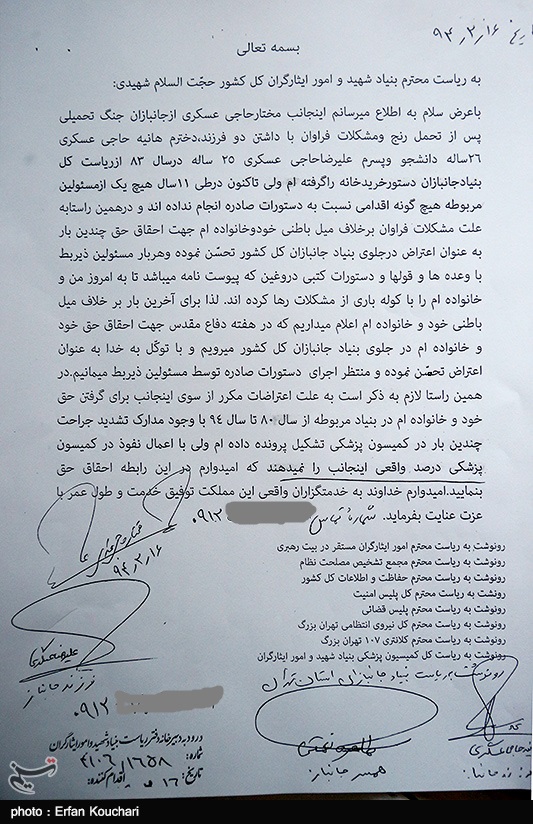 تاریخ ۹۴٫۳٫۱۶
بسمه تعالی
به ریاست محترم بنیاد شهید و امور ایثارگران کل کشور حجّت السلام شهیدی:
باعرض سلام به اطلاع میرسانم اینجانب مختارحاجی عسکری ازجانبازان جنگ تحمیلی
پس از تحمل رنج ومشکلات فراوان با داشتن دو فرزند،دخترم هانیه حاجی عسکری
۲۶ساله دانشجو وپسرم علیرضاحاجی عسکری ۲۵ ساله درسال ۸۳ ازریاست کل
بنیادجانبازان دستورخریدخانه راگرفته ام ولی تاکنون درطی ۱۱سال هیچ یک ازمسئولین
مربوطه هیچ گونه اقدامی نسبت به دستورات صادره انجام نداده اند و درهمین راستابه
علت مشکلات فراوان برخلاف میل باطنی خودوخانواده ام جهت احقاق حق چندین بار
به عنوان اعتراض درجلوی بنیاد جانبازان کل کشور تحصّن نموده وهربار مسئولین ذیربط
با وعده ها و قولها و دستورات کتبی دروغین که پیوست نامه میباشد تا به امروز من و
خانواده ام را با کوله باری از مشکلات رها کرده اند. لذا برای آخرین بار بر خلاف میل
باطنی خود و خانواده ام اعلام میداریم که در هفته دفاع مقدس جهت احقاق حق خود
و خانواده ام در جلوی بنیاد جانبازان کل کشور میرویم و با توکّل به خدا به عنوان
اعتراض تحصّن نموده و منتظر اجرای دستورات صادره توسط مسئولین ذیربط میمانیم.در
همین راستا لازم به ذکر است به علت اعتراضات مکرر از سوی اینجانب برای گرفتن حق
خود و خانواده ام در بنیاد مربوطه از سال ۸۰ تا سال ۹۴ با وجود مدارک تشدید جراحت
چندین بار در کمیسون پزشکی تشکیل پرونده داده ام ولی با اعمال نفوذ در کمیسون
پزشکی درصد واقعی اینجانب را نمیدهند که امیدوارم در این رابطه احقاق حق
بنمایید.امیدوارم خداوند به خدمتگزاران واقعی این مملکت توفیق خدمت و طول عمر با
عزت عنایت بفرماید. شماره تماس ۰۹۱۲
۹۴٫۳٫۱۶
رونوشت به ریاست محترم امور ایثارگران مستقر در بیت رهبری
رونوشت به ریاست محترم مجمع تشخیص مصلحت نظام
رونوشت به ریاست محترم حفاظت و اطلاعات کل کشور
رونشت به ریاست محترم کل پلیس امنیت
رونوشت به ریاست محترم پلیس قضائی
رونوشت به ریاست محترم کل نیروی انتظامی تهران بزرگ
رونوشت به ریاست محترم کلانتری ۱۰۷ تهران بزرگ
رونوشت به ریاست کل کمیسیون پزشکی بنیاد شهید و امور ایثارگران
رونوشت به ریاست بنیاد جانبازان استان تهران
فرزند جانباز
۰۹۱۲
همسر جانباز
ورود به دبیرخانه دفتر ریاست بنیاد شهید و امور ایثارگران
شماره: ۴۱۰۶/۱۶۵۸
تاریخ: ۱۶ اقدام کننده:
تسنیم
photo : Erfan Kouchari